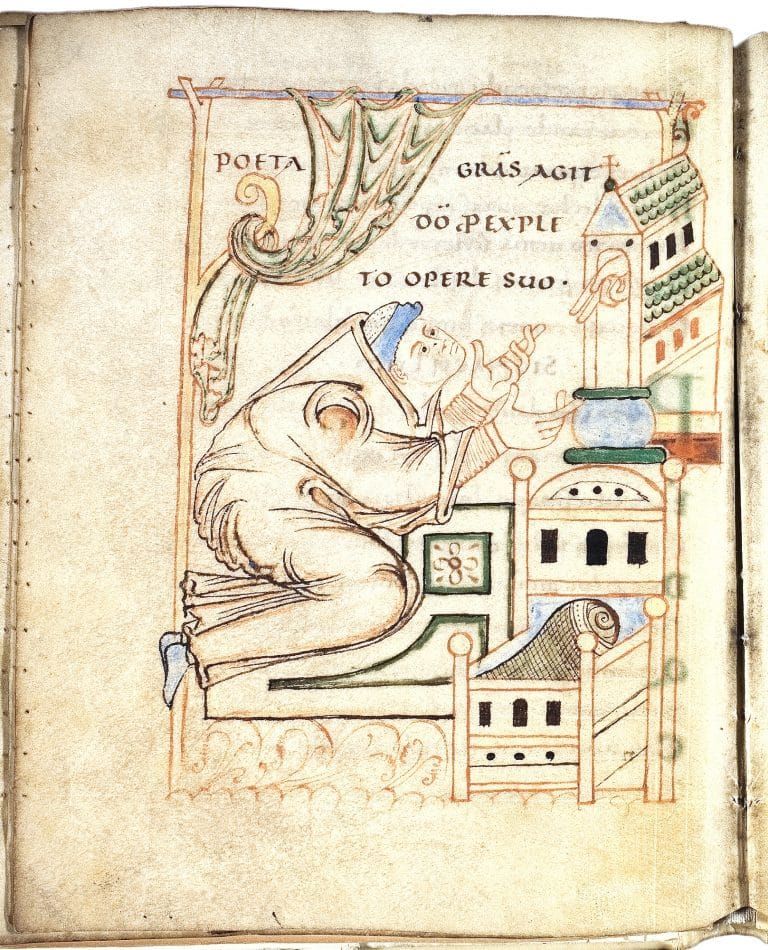 POETA GRĀS AGIT
DŌ ꝓ EXPLE
TO OPERE SUO·